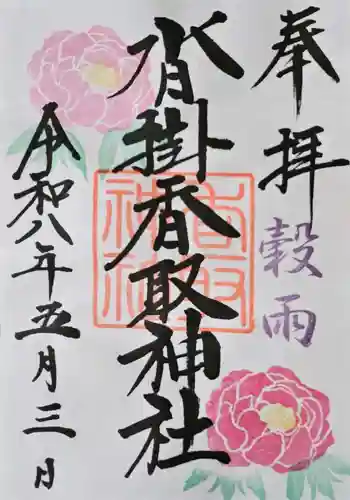 奉拝
穀雨
沓掛香取神社
香取
神社
令和八年五月三日